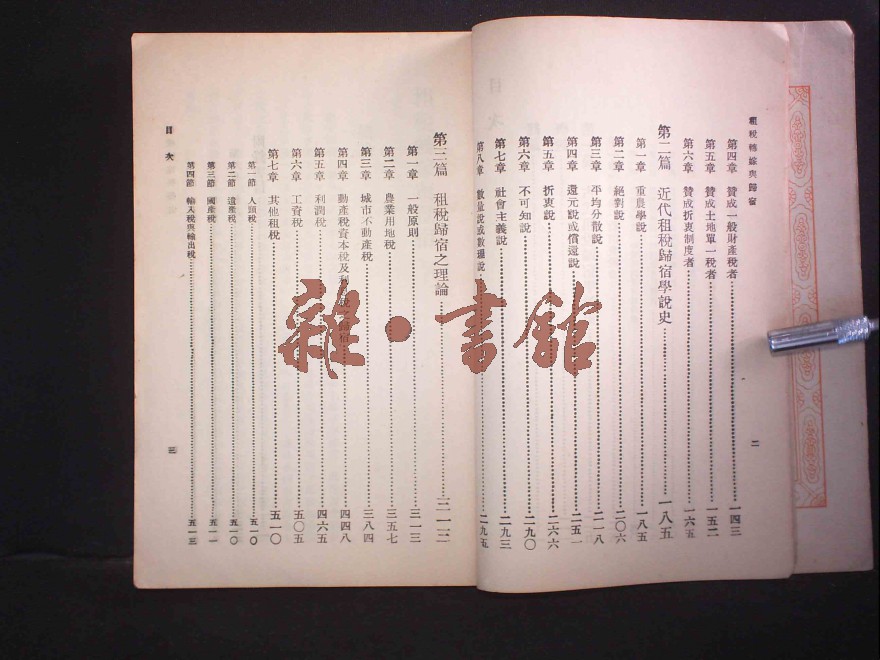 租稅轉嫁與歸宿
二
第四章 贊成一般財產稅者 一四三
第五章 贊成土地單一稅者 一五二
第六章 贊成折衷制度者 一六五
第二篇 近代租稅歸宿學說史 一八五
第一章 重農學說 一八五
第二章 絕對說 二〇六
第三章 平均分散說 二一八
第四章 還元說或償還說
第五章 折衷說 二六六
第六章 不可知說 二九〇
第七章 社會主義說 二九三
第八章 數量說或數理說 二九五
第三篇 租稅歸宿之理論 三一三
第一章 一般原則 三一三
第二章 農業用地稅 三五七
第三章 城市不動產稅 三八四
第四章 動產稅資本稅及利息稅之歸宿 四四八
第五章 利潤稅 四六五
第六章 工資稅 五〇五
第七章 其他租稅 五一〇
第一節 人頭稅 五一〇
第二節 遺產稅 五一〇
第三節 國產稅 五一一
第四節 輸入稅與輸出稅 五一三
目次
三
雜·書館